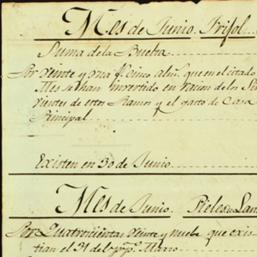 Mes de Junio. Frisol.
Suma de la Buelta
Por veinte y una f.s cinco alm.s que en el citado
Mes se han invertido en racion de los Sir
vientes de estos Ramos y el gasto de Casa
Principal
Existen en 30 de Junio
Mes de Junio.
Por Quatrocientas veinte y nueve que exis
tian el 31 de